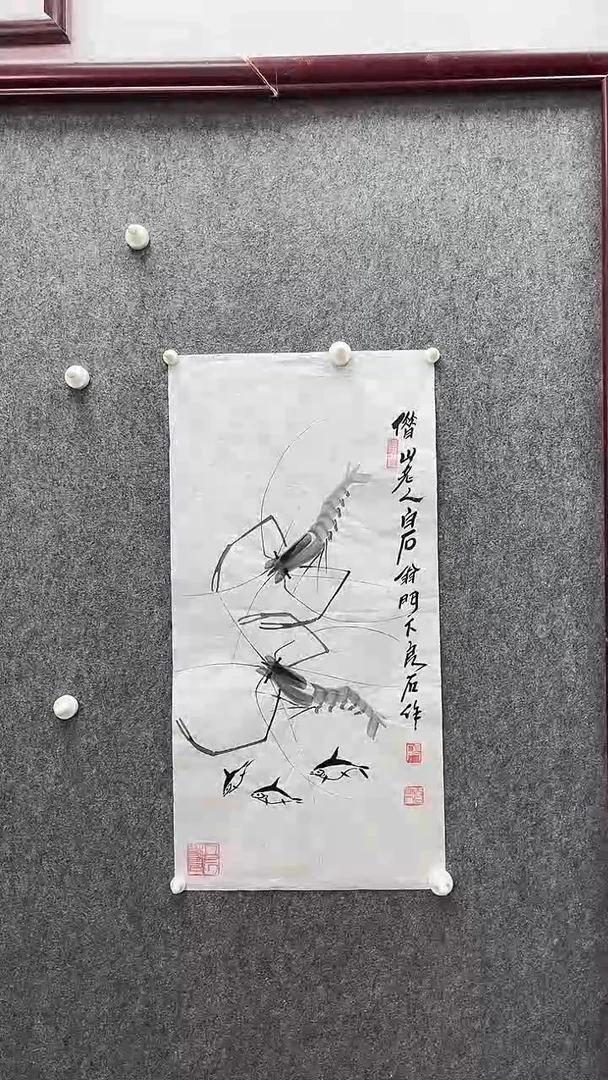 借山老人白石翁門下良石作